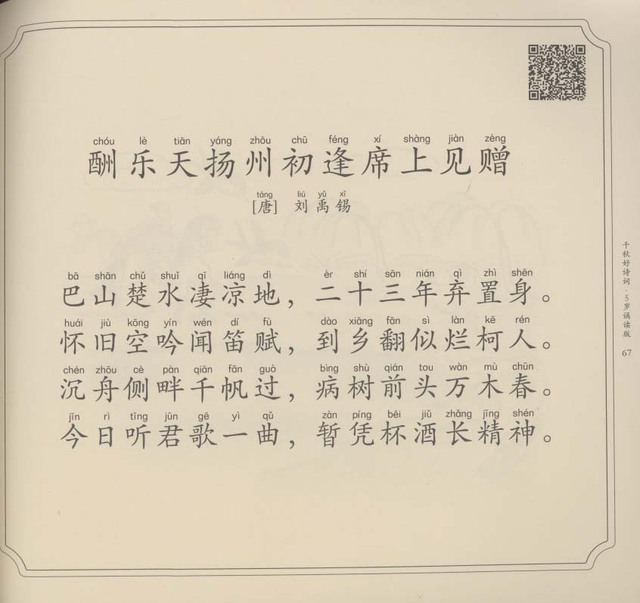 chóu lè tiān yáng zhōu chū féng xí shàng jiàn zèng
酬乐天扬州初逢席上见赠
táng liú yǔ xī
[唐] 刘禹锡
bā shān chǔ shuǐ qī liáng dì èr shí sān nián qì zhì shēn
巴山楚水凄凉地，二十三年弃置身。
huái jiù kōng yín wén dí fù dào xiāng fān sì làn kē rén
怀旧空吟闻笛赋，到乡翻似烂柯人。
chén zhōu cè pàn qiān fān guò bìng shù qián tou wàn mù chūn
沉舟侧畔千帆过，病树前头万木春。
jīn rì tīng jūn gē yì qǔ zàn píng bēi jiǔ zhǎng jīng shén
今日听君歌一曲，暂凭杯酒长精神。
千秋好诗词·5岁诵读版
67